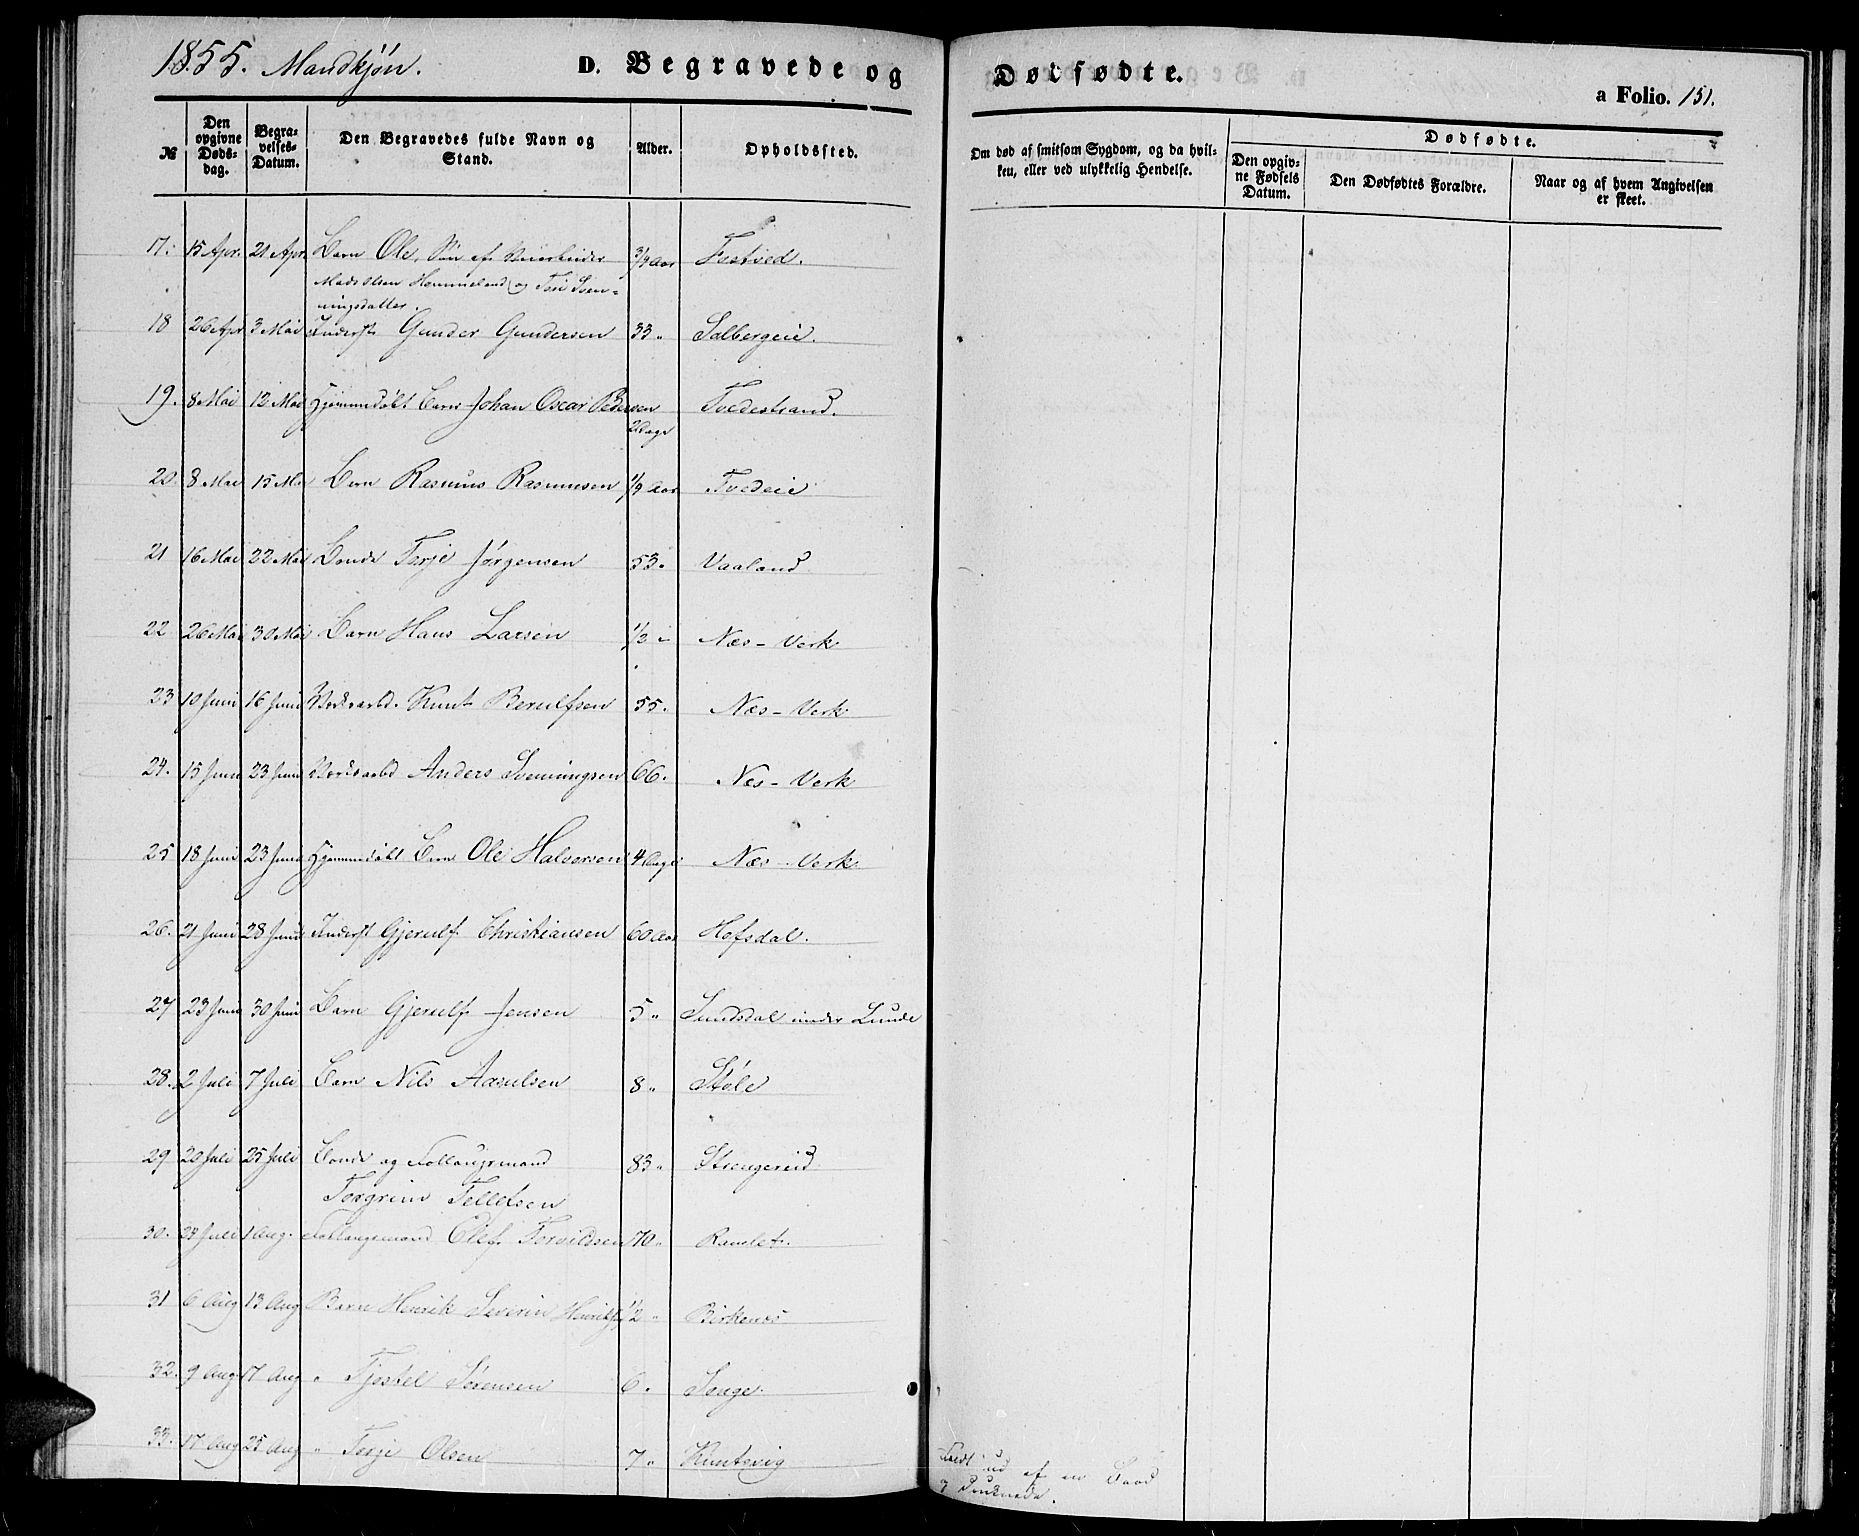 1855. Mandkjøn. D. Begravede og Dødfødte. a Folio. 151.
№ Den opgivne Dødsdag. Begravelses-Datum. Den Begravedes fulde Navn og Stand. Alder. Opholdssted. Om død af smitsom Sygdom, og da hvilken, eller ved ulykkelig Hendelse. Dødfødte. Den opgivne Fødsels Datum. Den Dødfødtes Forældre. Naar og af hvem Angivelsen er skeet.
17. 15 Apr. 21 Apr. Barn Ole, Søn af 3/4 Aar Fostved.
Mads Olsen Hommeland og Tore Sven-
ningsdatter.
18 26 Apr 3 Mai Inderst Gunder Gundersen 33 " Solbergeie.
19. 8 Mai 12 Mai Hjemmedøbt Barn Johan Oscar Pedersen Tvedestrand.
2 Dage
20 8 Mai 15 Mai Barn Rasmus Rasmusen Aar Tvedeie
21 16 Mai 22 Mai Bonde Terje Jørgensen 53 " Vaaland
22 26 Mai 30 Mai Barn Hans Larsen 1/2 " Næs-Verk
23 10 Juni 16 Juni Verksarbd. Knut Berulfsen 55. Næs-Verk
24. 15 Juni 23 Juni Verksarbd Anders Svenningsen 66. Næs-Verk
25 18 Juni 23 Juni Hjemmedøbt Barn Ole Halvorsen 4 Dage Næs-Verk
26. 21 Juni 28 Juni Inderst Gjerulf Christiansen 60 Aar Hofsdal.
27 23 Juni 30 Juni Barn Gjerulf Jensen 5 " Sundsdal under Lunde
28. 2 Juli 7 Juli Barn Nils Aasulsen 8 " Støle
29 20 Juli 25 Juli Bonde og Follaugsmand 83 " Strengereid
Torgrim Tellefsen
30. Juli 1 Aug. Follaugsmand Olef 70 " Ramlet.
31 6 Aug 13 Aug Barn Henrik Severin Henriksen 1/2 " Birkenes
32. 9 Aug. 17 Aug " Tjostel Sørensen 6 " Songe.
33. 17 Aug 25 Aug " Terje Olsen 7 " Kuntevig Faldt ud af en Baad
og druknede.